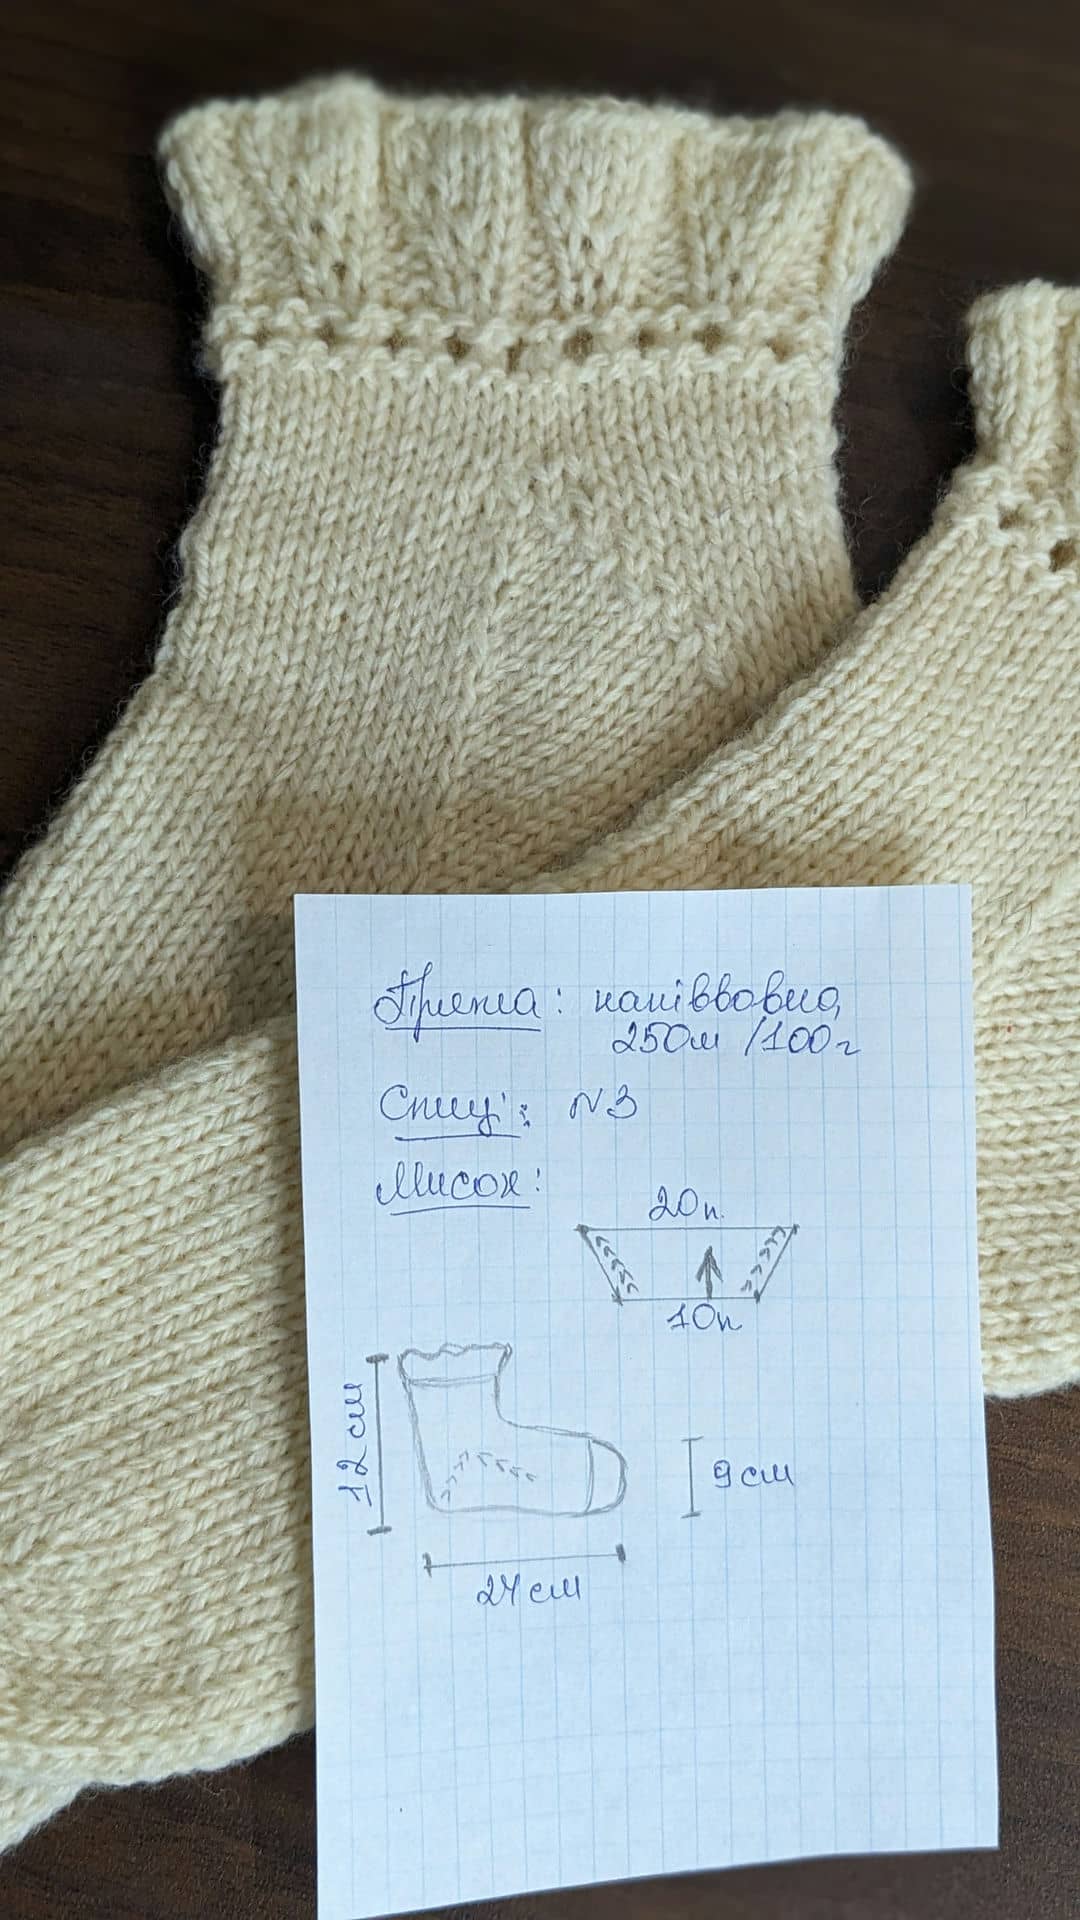 Пряжа: напіввовна,
250м /100г
Спиці: N3
Мисок:
20п.
10п
12 см
9 см
24 см